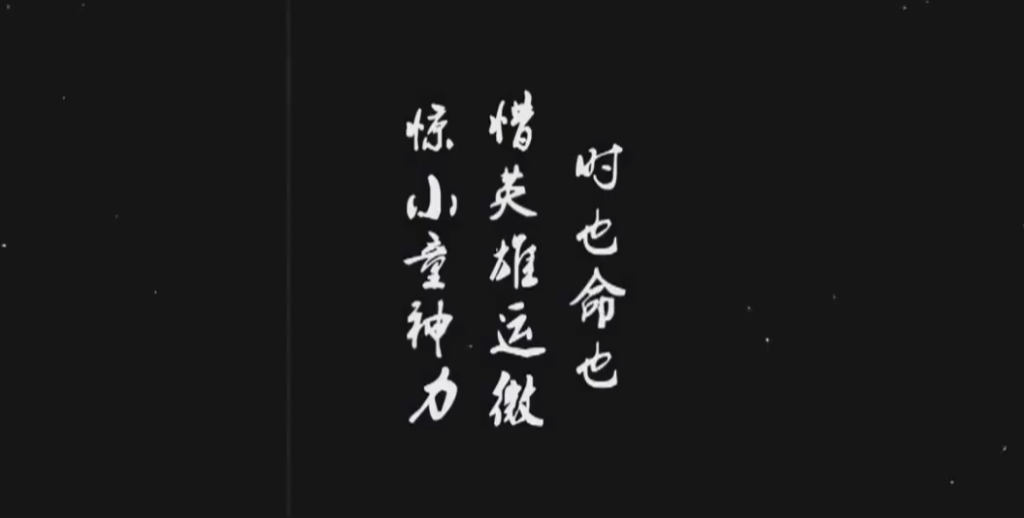 时也命也
惜英雄运微
惊小童神力